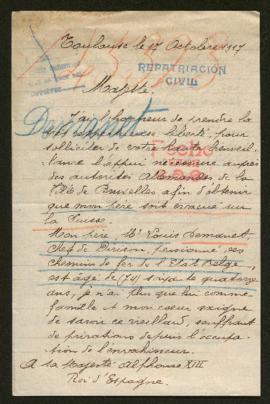 Toulouse le 17 Octobre 1917
REPATRIACIÓN
CIVIL
Majesté.
J'ai l'honneur de prendre la
liberté pour
solliciter de votre haute bienveil-
lance l'appui nécessaire auprès
des autorités Allemandes de la
Ville de Bruxelles afin d'obtenir
que mon père soit évacué sur
la Suisse.
Mon père, Mr Louis Demanet,
Chef de Division, pensionné des
Chemins de fer de l'Etat Belge,
est âgé de (74) soixante quatorze
ans, je n'ai plus que lui comme
famille et mon cœur saigne
de savoir ce vieillard, souffrant
de privations depuis l'occupa-
tion de l'envahisseur.
A sa Majesté Alphonse XIII
Roi d'Espagne.